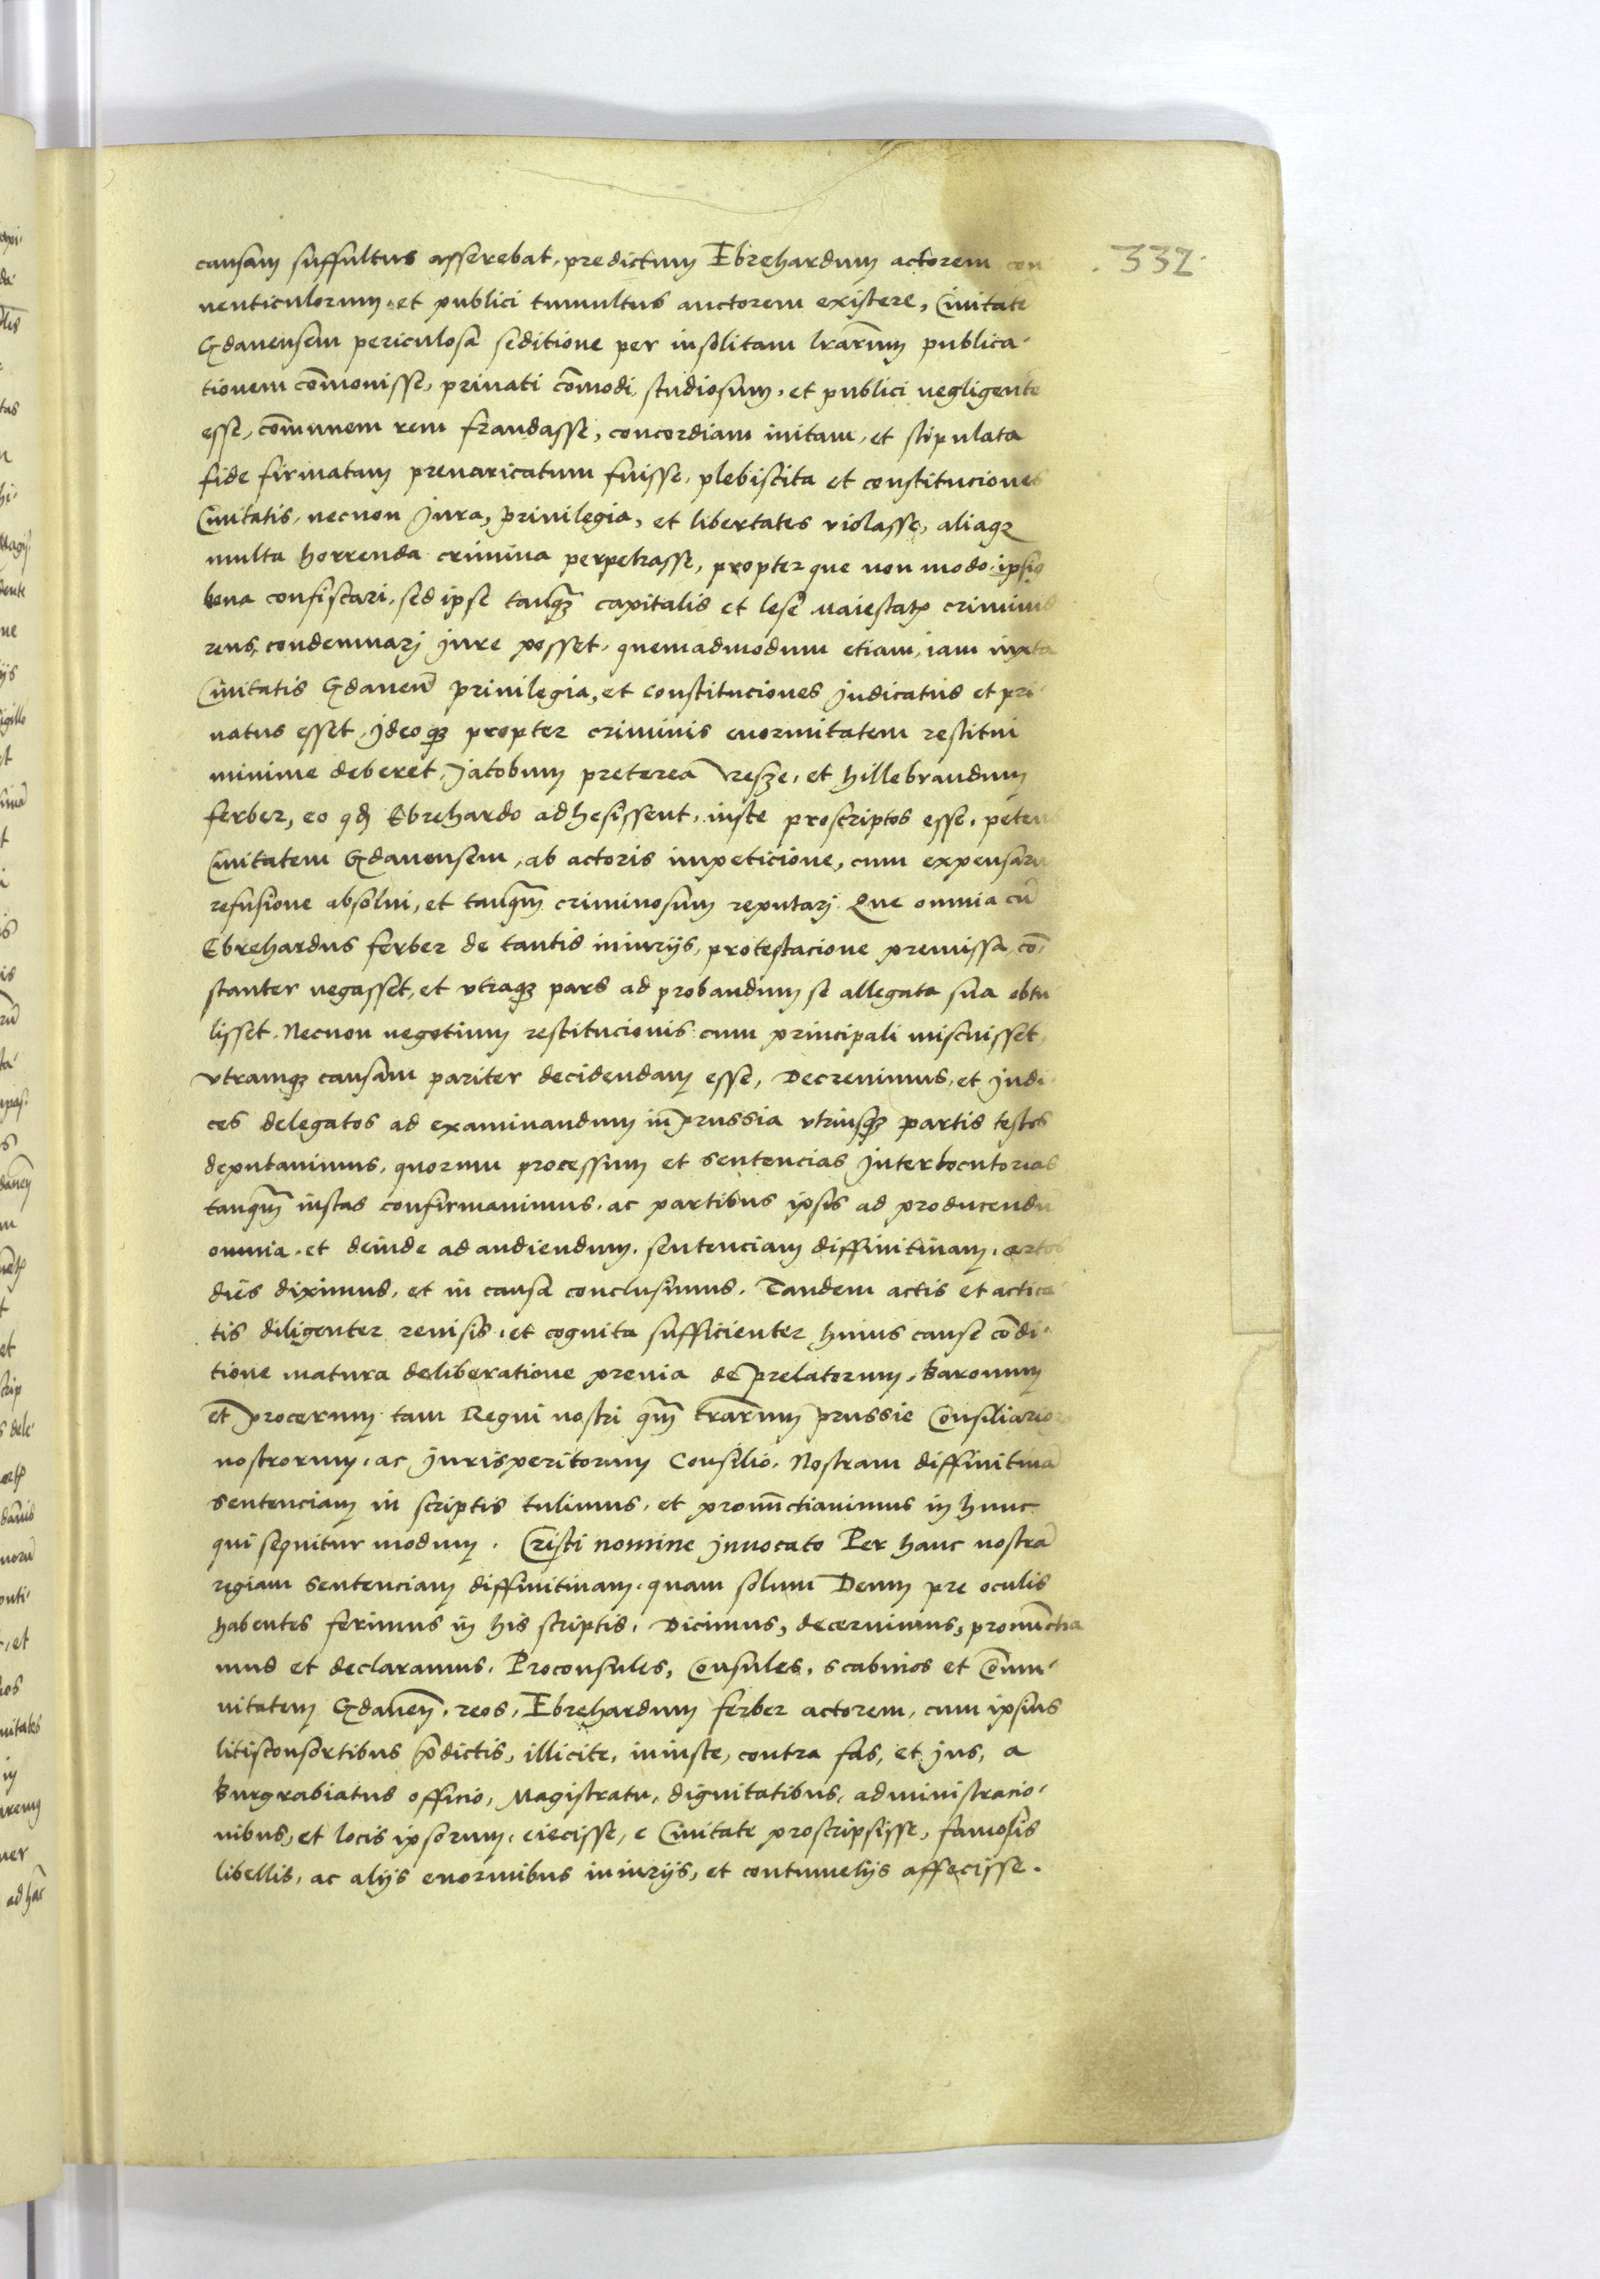 .332.
causam suffultus asserebat, predictum Ebrehardum actorem con
uenticulorum, et publici tumultus auctorem existere, Ciuitatē
Gdanensem periculosa seditione per insolitam lrārum publica-
tionem com̄ouisse, priuati com̄odi studiosum, et publici negligentē
esse, com̄unem rem fraudasse, concordiam initam, et stipulata
fide firmatam preuaricatum fuisse, plebiscita et constituciones
Ciuitatis, necnon Jura, priuilegia, et libertates violasse, aliaqȝ
multa horrenda crimina perpetrasse, propter que non modo ipsiꝰ
bona confiscari, sed ipse tanqȝ capitalis et lese Maiestatꝭ criminis
reus, condemnarj jure posset, quemadmodum etiam, iam iuxta
Ciuitatis Gdanen̄ priuilegia, et constituciones judicatus et pri-
uatus esset, jdeoqȝ propter criminis enormitatem restitui
minime deberet, Jacobum preterea Vresze, et Hillebrandum
ferber, eo qđ Ebrehardo adhesissent, iuste proscriptos esse, petens
Ciuitatem Gdanensem, ab actoris impeticione, cum expensarū
refusione absolui, et tanqm̄ criminosum reputarj. Que omnia cū
Ebrehardus ferber de tantis iniurijs, protestacione premissa, cō-
stanter negasset, et vtraqȝ pars ad probandum se allegata sua obtu
lisset. Necnon negotium restitucionis cum principali miscuisset,
vtramqȝ causam pariter decidendam esse, Decreuimus, et Judi-
ces delegatos ad examinandum in prussia vtriusqȝ partis testes
deputauimus, quorum processum et sentencias Interlocutorias
tanqm̄ iustas confirmauimus, ac partibus ipsis ad producendū
omnia, et deinde ad audiendum, sentenciam diffinitiuam, certos
dies diximus, et in causa conclusimus. Tandem actis et actica
tis diligenter reuisis, et cognita sufficienter huius cause cōdi-
tione matura deliberatione preuia de prelatorum, Baronum
et procerum tam Regni nostri qm̄ trārum prussie Consiliarioꝝ
nostrorum, ac jurisperitorum Consilio, Nostram diffinitiuā
sentenciam in scriptis tulimus, et pronūctiauimus in hunc
qui sequitur modum. Cristi nomine jnuocato Per hanc nostrā
regiam sentenciam diffinitiuam, quam solum Deum pre oculis
habentes ferimus in his scriptis, Dicimus, decernimus, pronūctia
mus et declaramus, Proconsules, Consules, scabinos et Com̄u-
nitatem Gdanen̄, reos, Ebrehardum ferber actorem, cum ipsius
litisconsortibus p̄dictis, illicite, iniuste, contra fas, et jus, a
Burgrabiatus officio, Magistratu, dignitatibus, administracio-
nibus, et locis ipsorum, eiecisse, e Ciuitate proscripsisse, famosis
libellis, ac alijs enormibus iniurijs, et contumelijs affecisse.